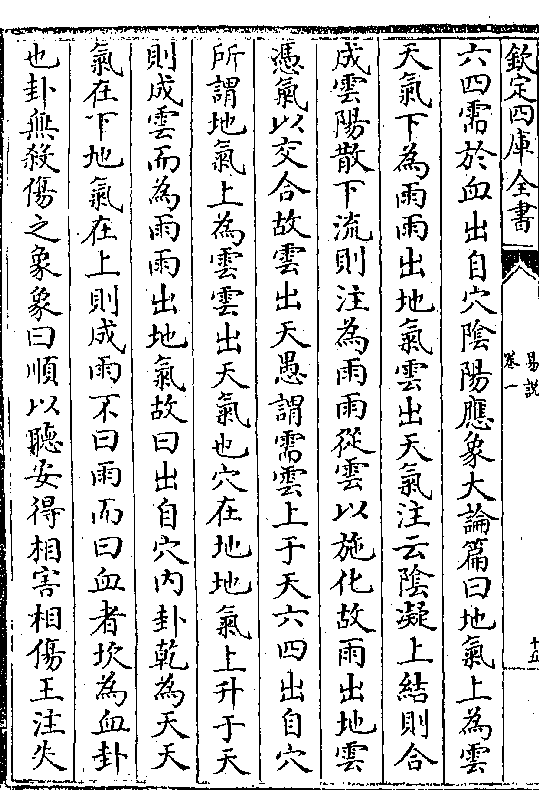 欽定四庫全書
易說
卷一
十五
六四需於血出自穴陰陽應象大論篇曰地氣上為雲
天氣下為雨雨出地氣雲出天氣注云陰凝上結則合
成雲陽散下流則注為雨雨從雲以施化故雨出地雲
憑氣以交合故雲出天愚謂需雲上于天六四出自穴
所謂地氣上為雲雲出天氣也穴在地地氣上升于天
則成雲而為雨雨出地氣故曰出自穴內卦乾為天天
氣在下地氣在上則成雨不曰雨而曰血者坎為血卦
也卦無殺傷之象象曰順以聽安得相害相傷王注失